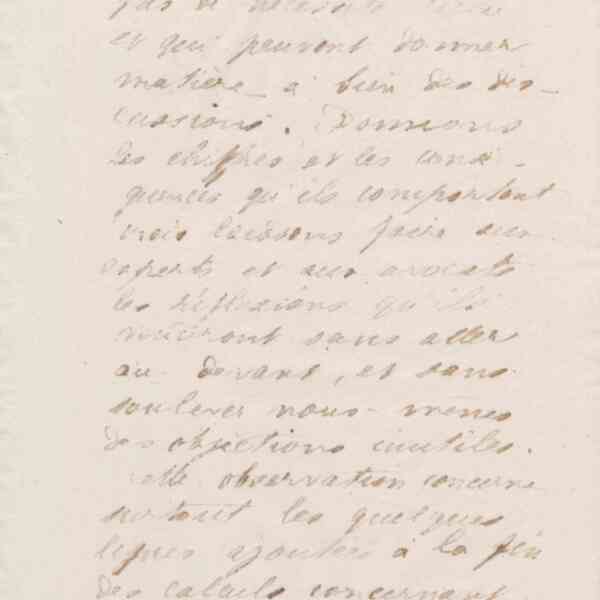 pas de nécessité
et qui peuvent donner
matière à bien des dis-
cussions. Donnons
les chiffres et les consé-
quences qu'ils comportent
mais laissons faire aux
experts et aux avocats
les réflexions qu'ils
voudront sans aller
au devant, et sans
soulever nous-mêmes
des objections inutiles.
Cette observation concerne
surtout les quelques
lignes ajoutées à la fin
des calculs concernant